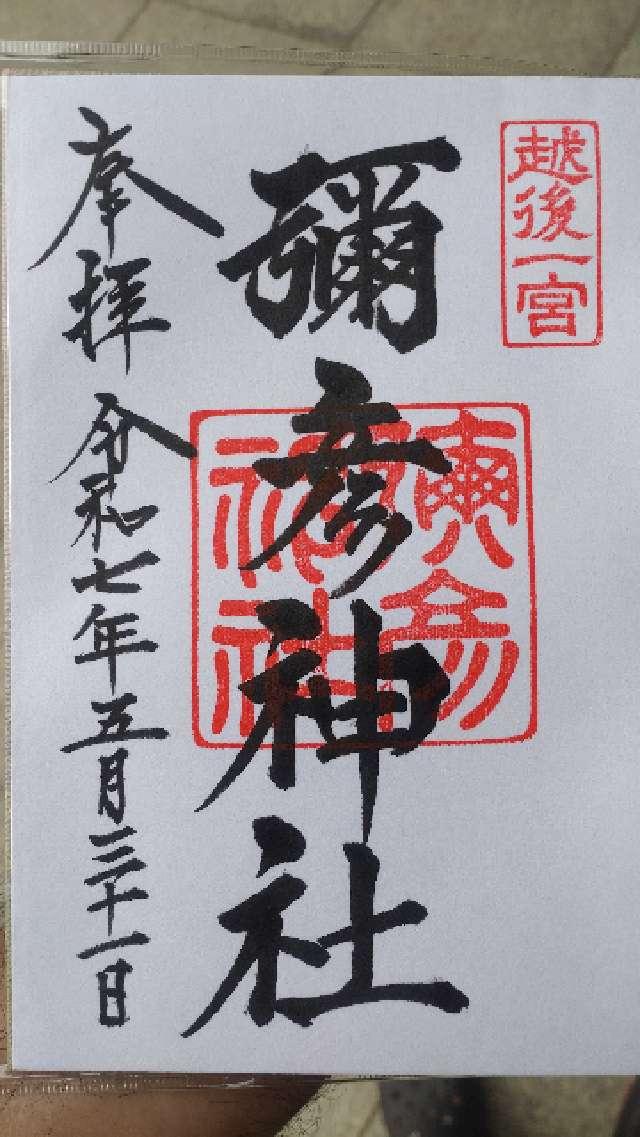 越後一宮
彌彦神社
彌彦神社
奉拝 令和七年五月三十一日